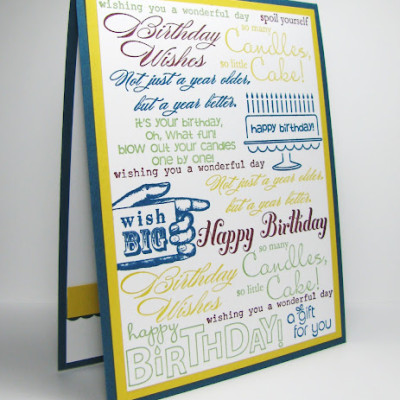 wishing you a wonderful day
spoil yourself
Birthday
Wishes
so many
Candles,
so little
Cake!
Not just a year older,
but a year better.
happy birthday!
it's your birthday,
Oh, what fun!
blow out your candles
one by one!
wishing you a wonderful day
Not just a year older,
but a year better.
wish
BIG
Happy Birthday
so many
Candles,
so little
Cake!
Birthday
Wishes
wishing you a wonderful day
happy
BIRTHDAY!
a gift
for you